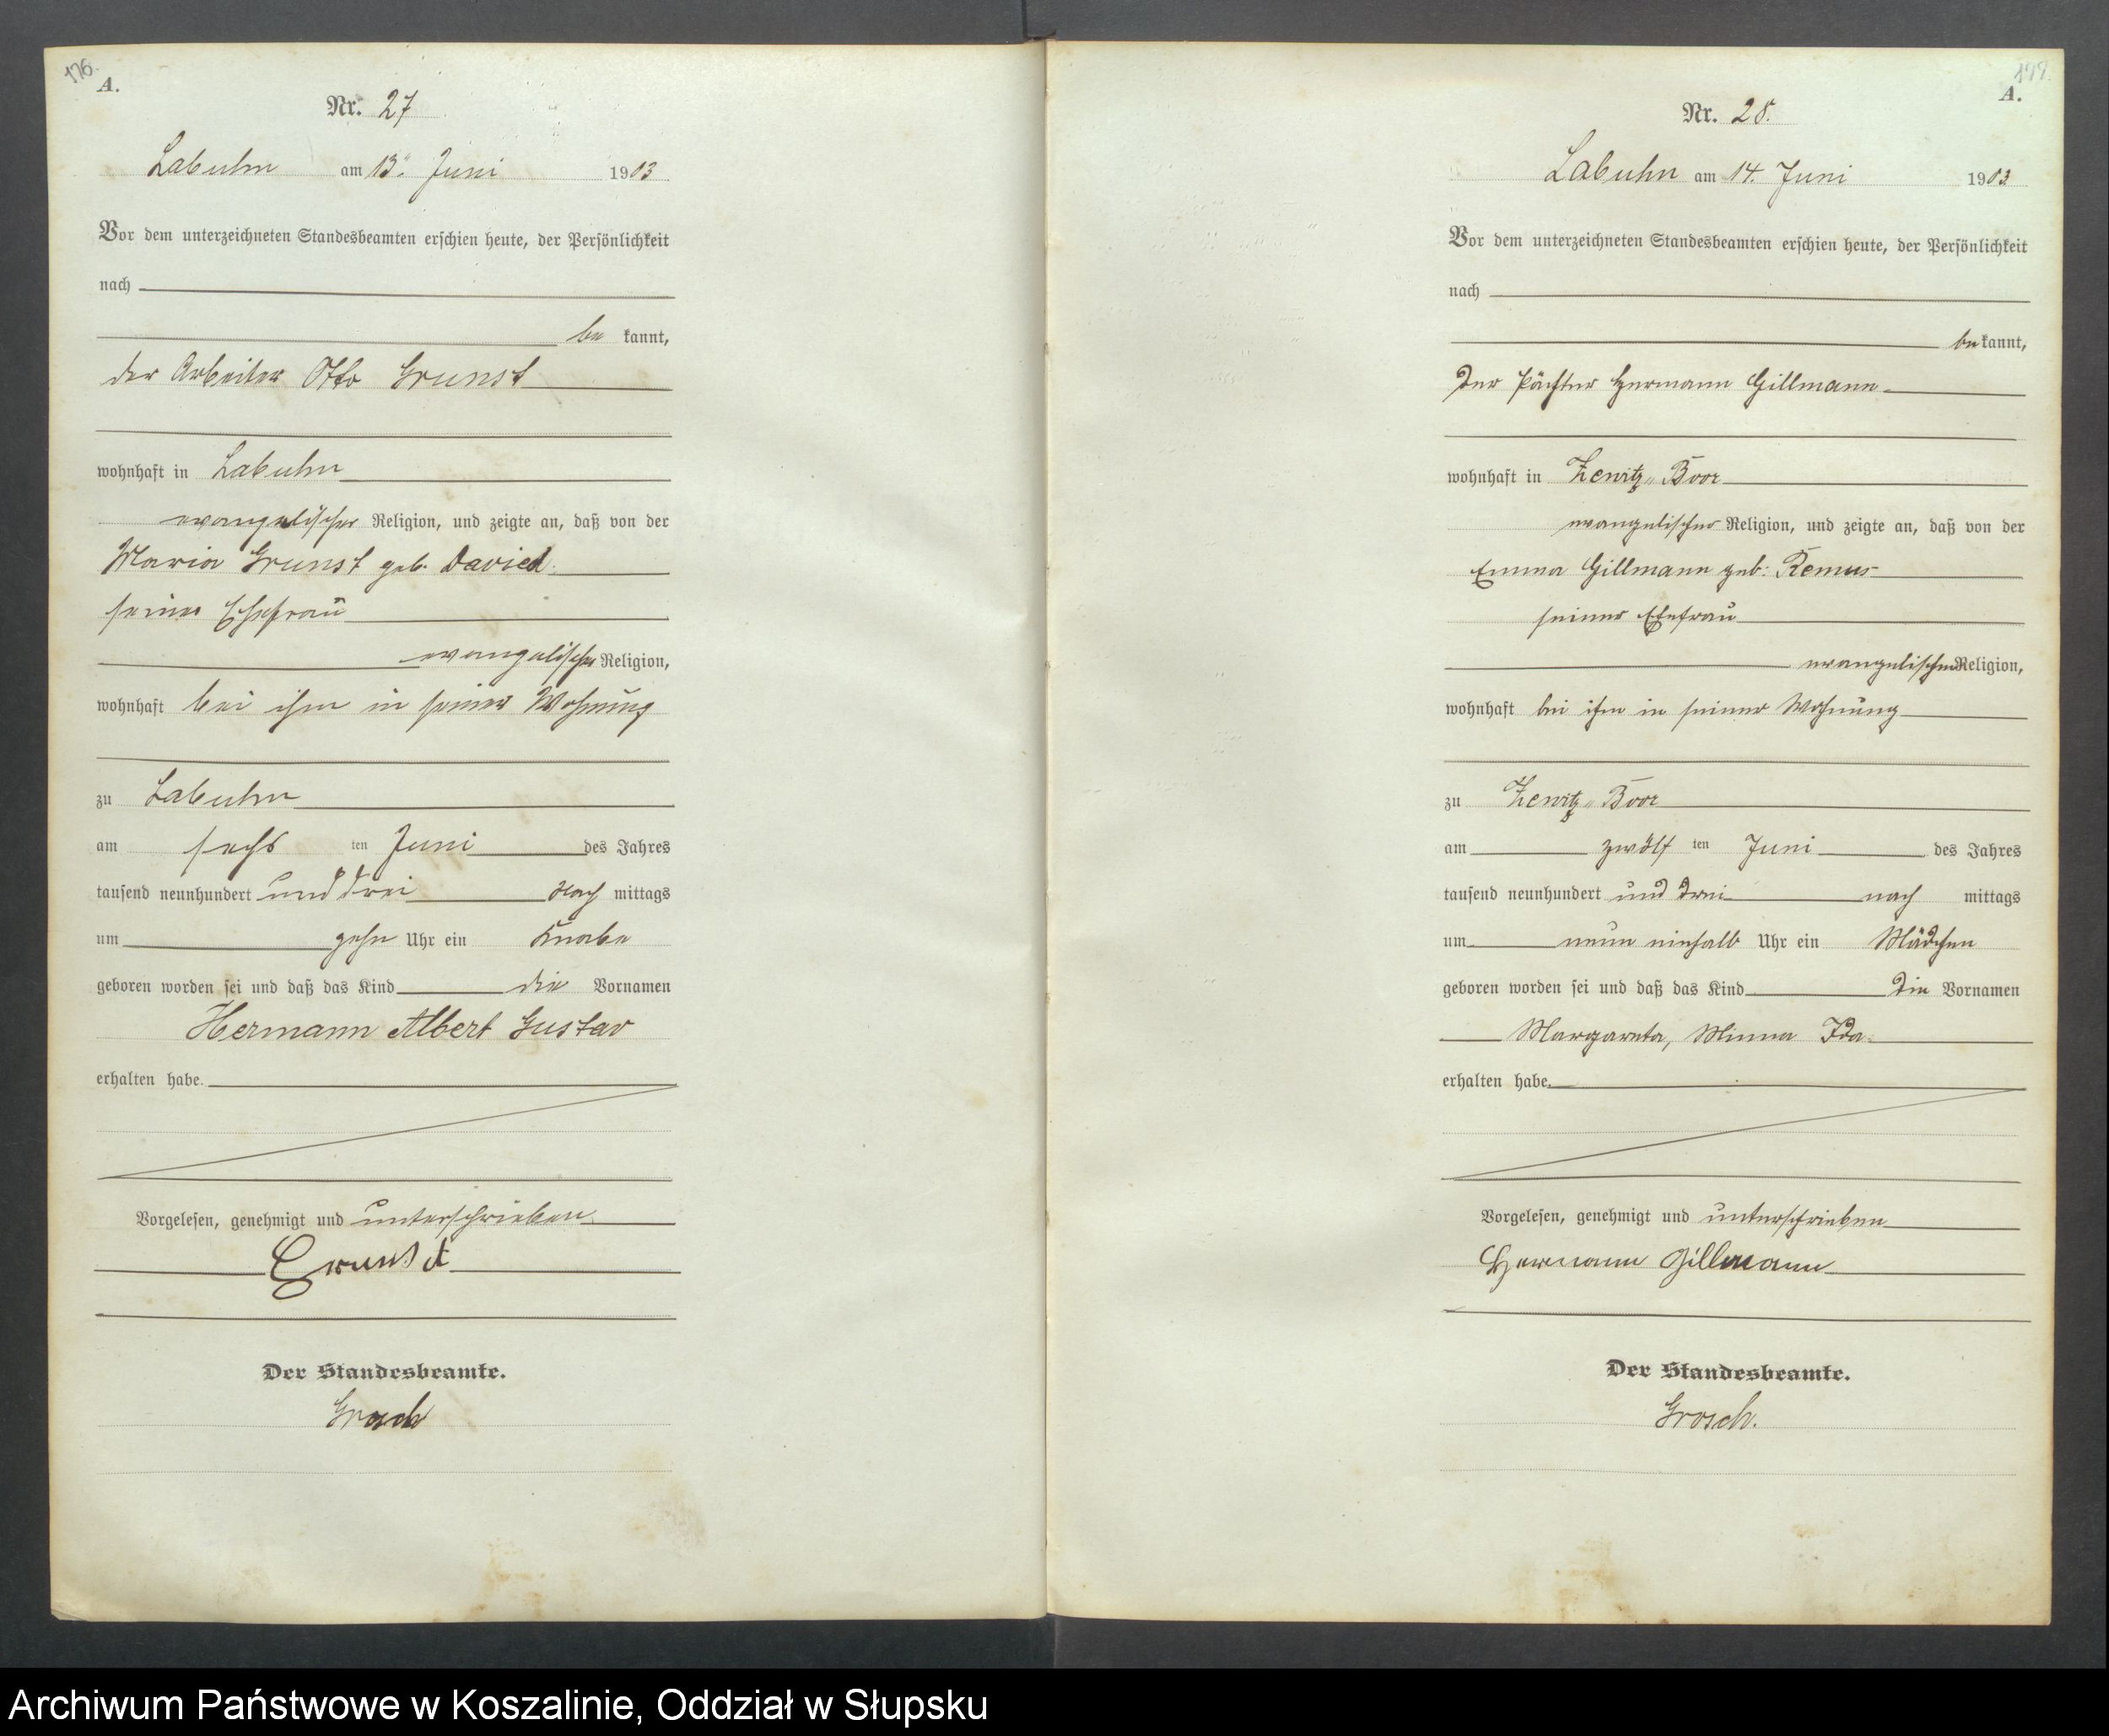 176.
A.
Nr. 27
Labuhn am 13. Juni 1903
Vor dem unterzeichneten Standesbeamten erschien heute, der Persönlichkeit
nach
be kannt,
der Arbeiter Otto Grunst
wohnhaft in Labuhn
evangelischer Religion, und zeigte an, daß von der
Maria Grunst geb. David
seiner Ehefrau
evangelischer Religion,
wohnhaft bei ihm in seiner Wohnung
zu Labuhn
am sechs ten Juni des Jahres
tausend neunhundert und drei Nach mittags
um zehn Uhr ein Knabe
geboren worden sei und daß das Kind die Vornamen
Hermann Albert Gustav
erhalten habe.
Vorgelesen, genehmigt und unterschrieben
Grunst
Der Standesbeamte.
Grosch
177.
A.
Nr. 28.
Labuhn am 14. Juni 1903
Vor dem unterzeichneten Standesbeamten erschien heute, der Persönlichkeit
nach
be kannt,
der Pächter Hermann Gillmann
wohnhaft in Zewitz Boor
evangelischer Religion, und zeigte an, daß von der
Emma Gillmann geb: Remus
seiner Ehefrau
evangelischer Religion,
wohnhaft bei ihm in seiner Wohnung
zu Zewitz Boor
am zwölf ten Juni des Jahres
tausend neunhundert und drei nach mittags
um neun einhalb Uhr ein Mädchen
geboren worden sei und daß das Kind die Vornamen
Margareta, Minna Ida
erhalten habe.
Vorgelesen, genehmigt und unterschrieben
Hermann Gillmann
Der Standesbeamte.
Grosch.
Archiwum Państwowe w Koszalinie, Oddział w Słupsku